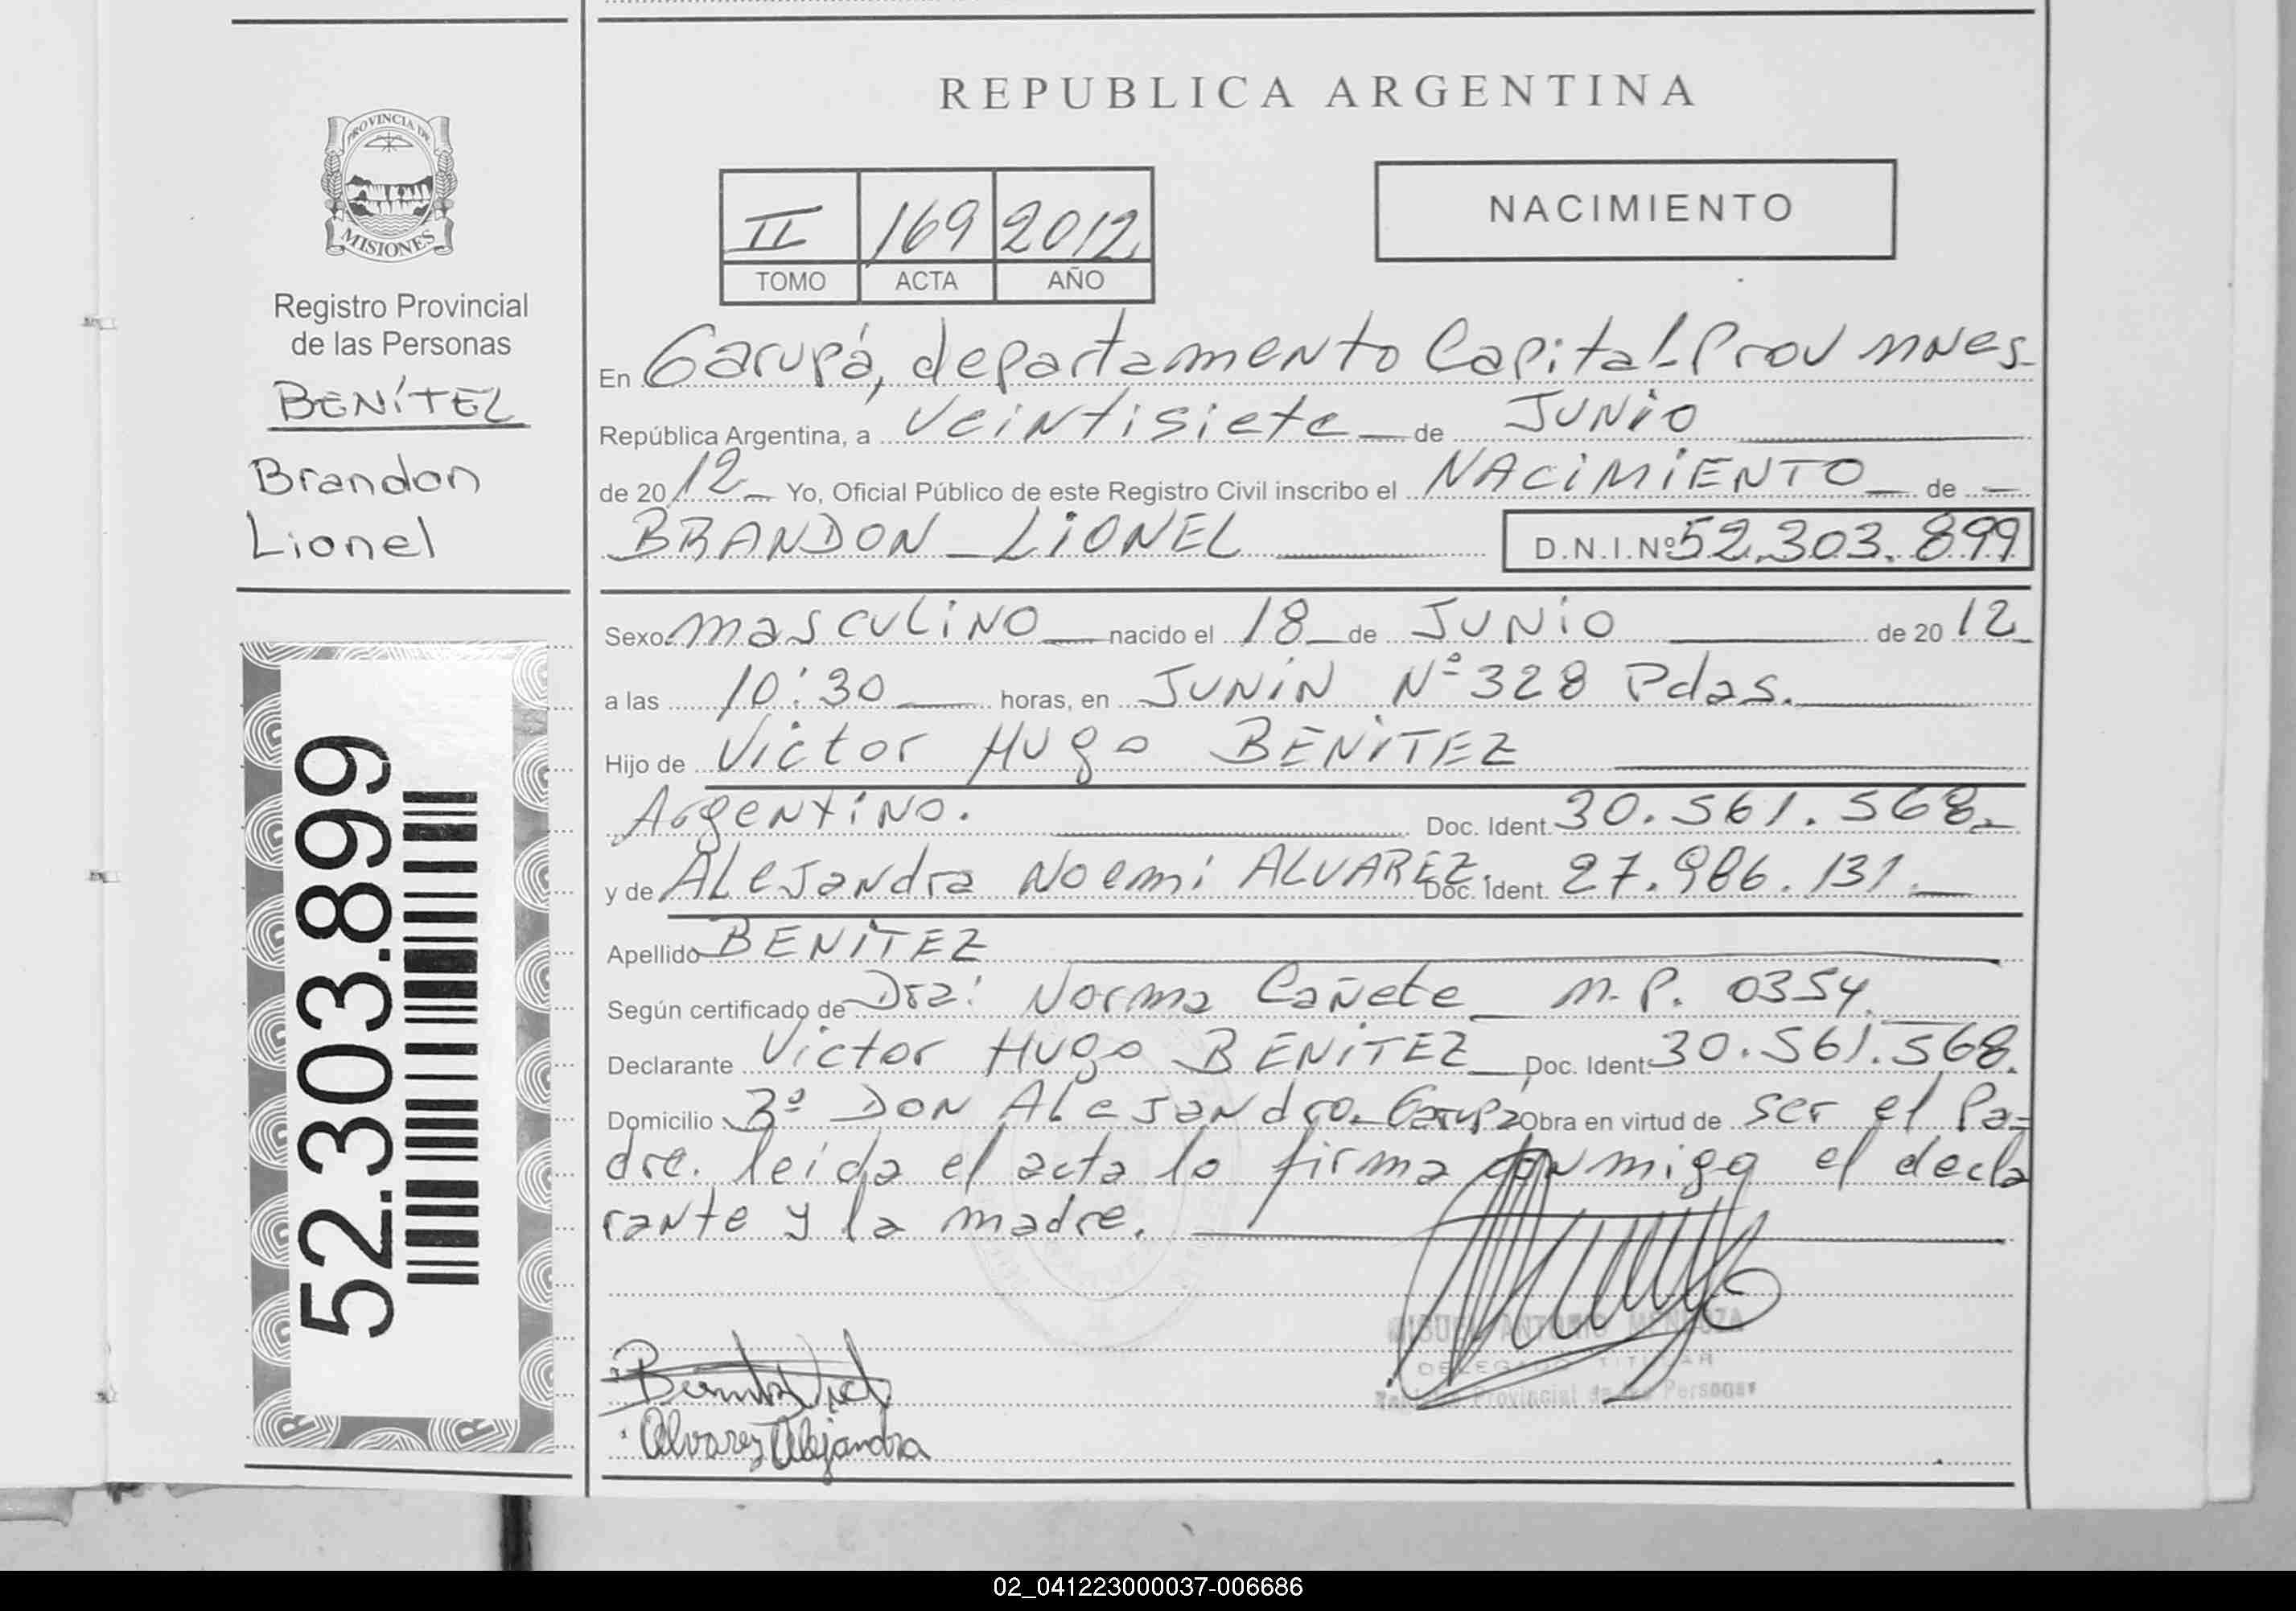 REPUBLICA ARGENTINA
PROVINCIA DE
MISIONES
Registro Provincial
de las Personas
BENÍTEZ
Brandon
Lionel
52.303.899
II 169 2012
TOMO ACTA AÑO
NACIMIENTO
En Garupá, departamento Capital-Prov mnes-
República Argentina, a veintisiete de JUNIO
de 2012 Yo, Oficial Público de este Registro Civil inscribo el NACIMIENTO de
BRANDON LIONEL D.N.I.Nº 52.303.899
Sexo masculino nacido el 18 de JUNIO de 2012
a las 10:30 horas, en JUNIN Nº 328 Pdas.
Hijo de Victor Hugo BENITEZ
Argentino. Doc. Ident. 30.561.568
y de Alejandra Noemi ALVAREZ. Doc. Ident. 27.986.131
Apellido BENITEZ
Según certificado de Dra: Norma Cañete M.P. 0354
Declarante Victor Hugo BENITEZ Doc. Ident. 30.561.568.
Domicilio Bº DON Alejandro-Garupá Obra en virtud de ser el Pa-
dre. leida el acta lo firma conmigo el decla
rante y la madre.
MIGUEL ANTONIO MENDOZA
DELEGADO TITULAR
Registro Provincial de las Personas
Alvarez Alejandra
02_041223000037-006686